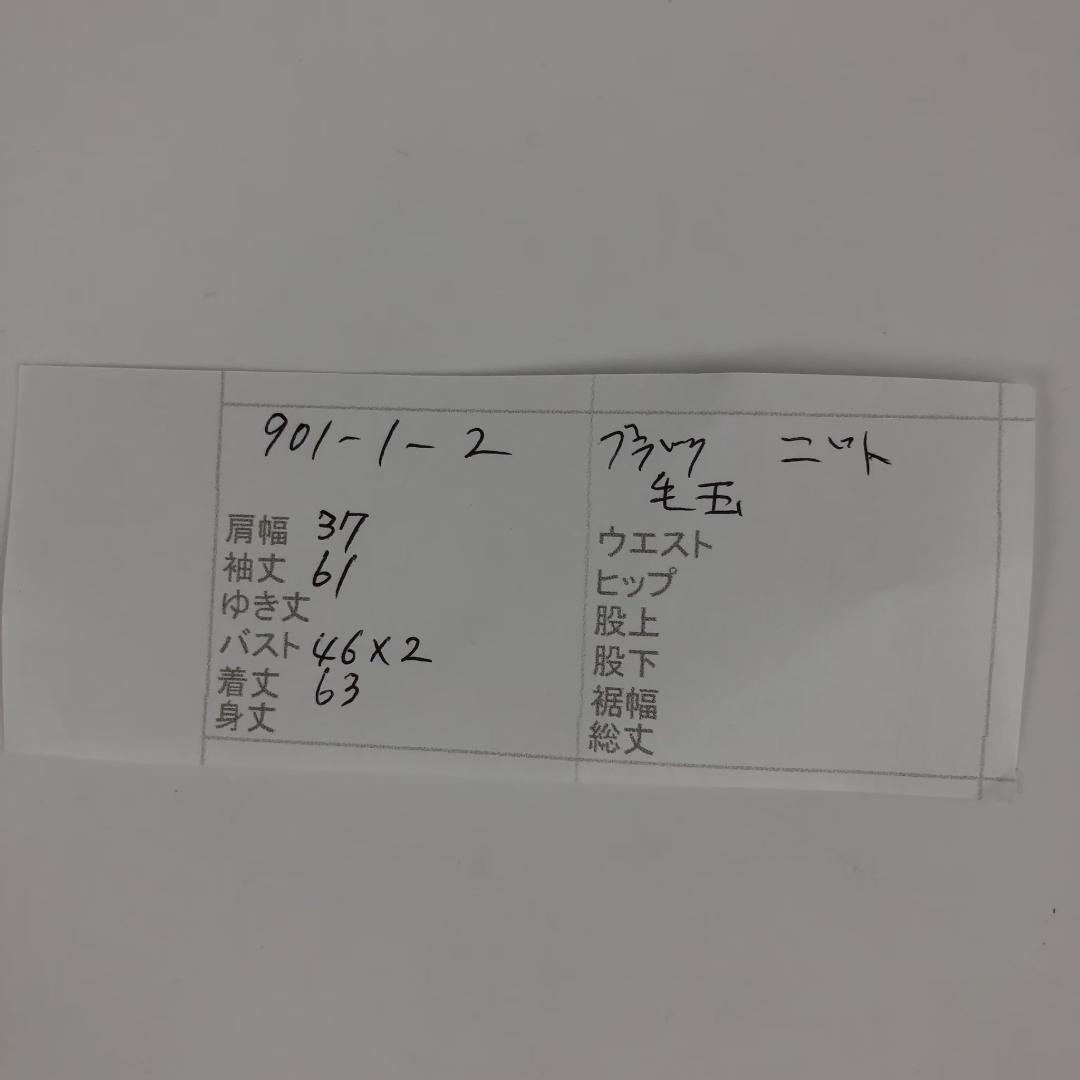 901-1-2
肩幅 37
袖丈 61
ゆき丈
バスト 46×2
着丈 63
身丈
ブラック ニット
毛玉
ウエスト
ヒップ
股上
股下
裾幅
総丈